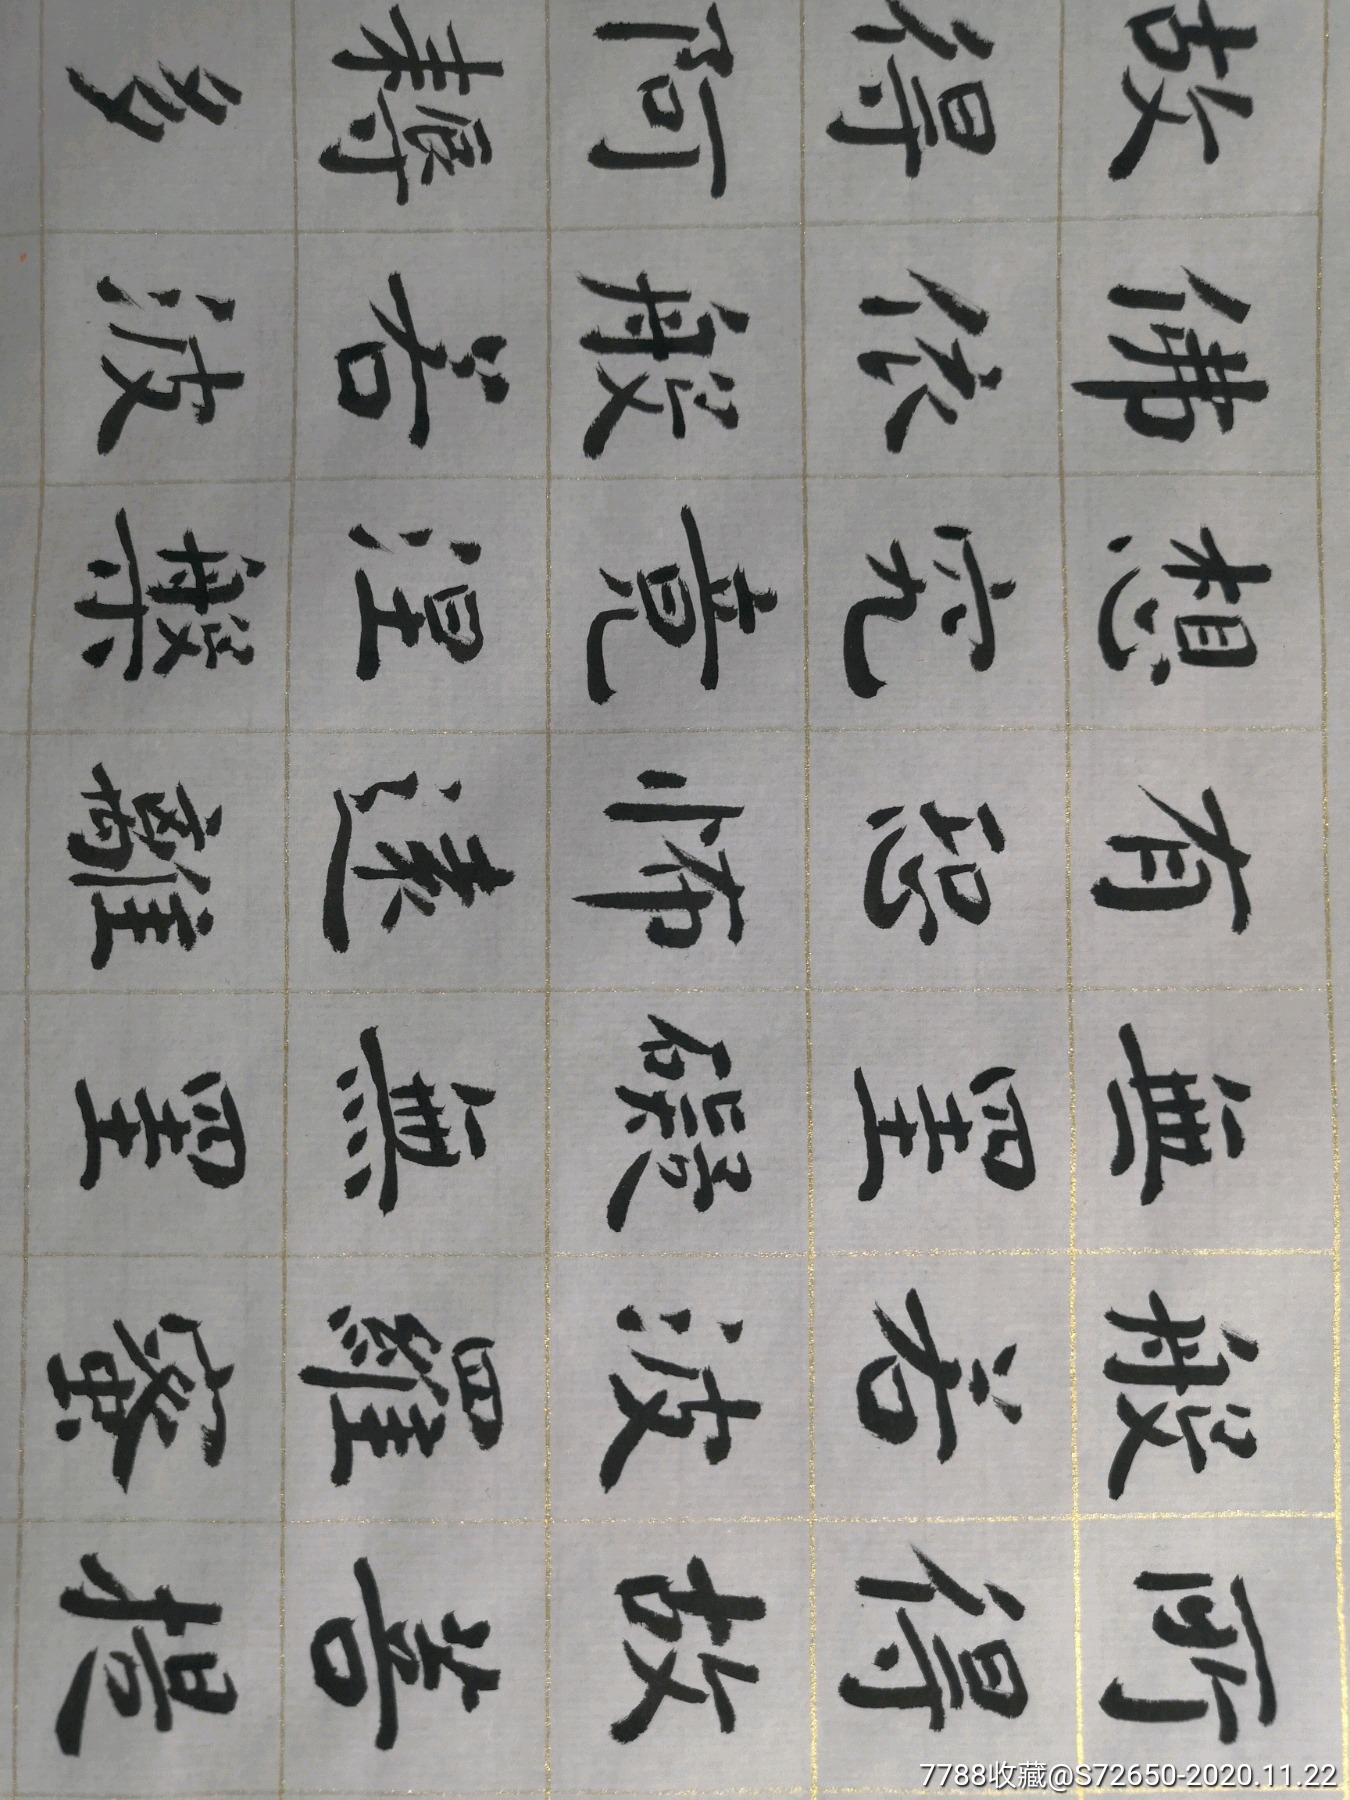 所得故菩提
般若波羅蜜
無罣礙無罣
有恐怖遠離
想究竟涅槃
佛依般若波
故得阿耨多
7788收藏@S72650-2020.11.22